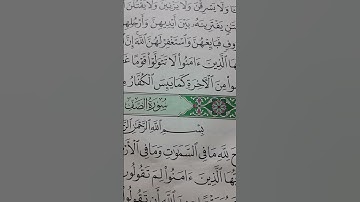 وَلَا يَسْرِقْنَ وَلَا يَزْنِينَ وَلَا يَقْتُلْنَ
يَفْتَرِينَهُۥ بَيْنَ أَيْدِيهِنَّ وَأَرْجُلِهِ
وفٍ فَبَايِعْهُنَّ وَٱسْتَغْفِرْ لَهُنَّ ٱللَّهَ إِنَّ
هَا ٱلَّذِينَ ءَامَنُوا۟ لَا تَتَوَلَّوْا۟ قَوْمًا غَ
وا۟ مِنَ ٱلْءَاخِرَةِ كَمَا يَئِسَ ٱلْكُفَّارُ مِ
سُورَةُ الصَّفِّ
بِسْمِ ٱللَّهِ ٱلرَّحْمَٰنِ ٱلرَّ
حَ لِلَّهِ مَا فِى ٱلسَّمَٰوَٰتِ وَمَا فِى ٱلْأَرْ
هَا ٱلَّذِينَ ءَامَنُوا۟ لِمَ تَقُولُونَ
ٱللَّهِ أَن تَقُولُ